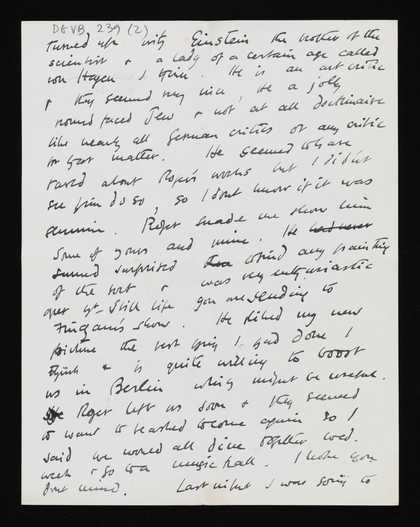 DEVB 239 (2)
turned up with Einstein the brother of the
scientist & a lady of a certain age called
von Hagen I think. He is an art critic
& they seemed very nice, he a jolly
round faced Jew & not at all doctrinaire
like nearly all German critics or any critic
for that matter. He seemed to have
raved about Roger's works but I didn't
see him do so, so I don't know if it was
genuine. Roger made me show him
some of yours and mine. He had never
seemed surprised to find any painting
of the sort & was very enthusiastic
over yr Still life you are sending to
's show. He liked my new
picture the best thing I had done I
think & is quite willing to boost
us in Berlin which might be useful.
Roger left us soon & they seemed
to want to be asked to come again so I
said we would all dine together wed.
week & go to a music hall. I hope you
dont mind. Last night I was going to